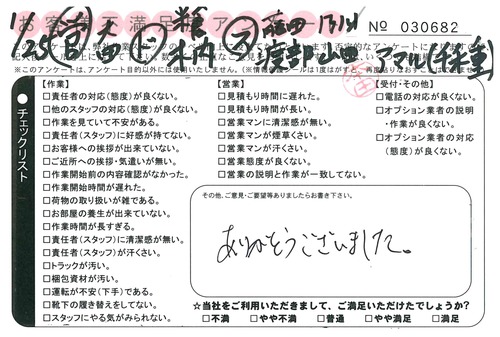 お客様不満足度アンケート
№ 030682
1/28
木内
山田
アマル(千葉)
※このアンケートは、アンケート目的以外には使用いたしません。
チェックリスト
【作業】
□責任者の対応(態度)が良くない。
□他のスタッフの対応(態度)が良くない。
□作業を見ていて不安がある。
□責任者(スタッフ)に好感が持てない。
□お客様への挨拶が出来ていない。
□ご近所への挨拶・気遣いが無い。
□作業開始前の内容確認がなかった。
□作業開始時間が遅れた。
□荷物の取り扱いが雑である。
□お部屋の養生が出来ていない。
□作業時間が長すぎる。
□責任者(スタッフ)に清潔感が無い。
□責任者(スタッフ)が汗くさい。
□トラックが汚い。
□梱包資材が汚い。
□運転が不安(下手)である。
□靴下の履き替えをしてない。
□スタッフにやる気がみられない。
【営業】
□見積もり時間に遅れた。
□見積もり時間が長い。
□営業マンに清潔感が無い。
□営業マンが煙草くさい。
□営業マンが汗くさい。
□営業態度が良くない。
□営業の説明と作業が一致してない。
【受付・その他】
□電話の対応が良くない。
□オプション業者の説明
・作業が良くない。
□オプション業者の対応
(態度)が良くない。
その他、ご意見・ご要望等ありましたらお書き下さい。
ありがとうございました。
☆当社をご利用いただきまして、ご満足いただけたでしょうか?
□不満 □やや不満 □普通 □やや満足 □満足